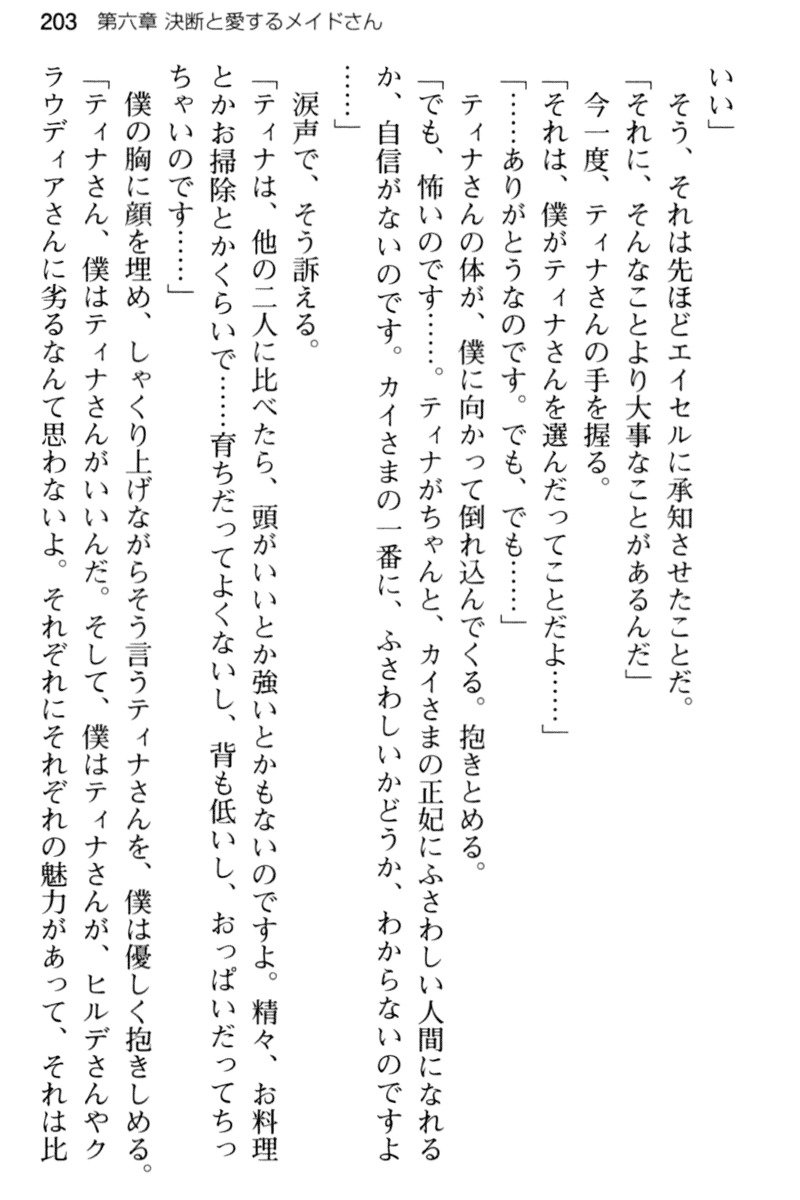 203 第六章 決断と愛するメイドさん
いい」
　そう、それは先ほどエイセルに承知させたことだ。
「それに、そんなことより大事なことがあるんだ」
　今一度、ティナさんの手を握る。
「それは、僕がティナさんを選んだってことだよ……」
「……ありがとうなのです。でも、でも……」
　ティナさんの体が、僕に向かって倒れ込んでくる。抱きとめる。
「でも、怖いのです……。ティナがちゃんと、カイさまの正妃にふさわしい人間になれる
か、自信がないのです。カイさまの一番に、ふさわしいかどうか、わからないのですよ
……」
　涙声で、そう訴える。
「ティナは、他の二人に比べたら、頭がいいとか強いとかもないのですよ。精々、お料理
とかお掃除とかくらいで……育ちだってよくないし、背も低いし、おっぱいだってちっ
ちゃいのです……」
　僕の胸に顔を埋め、しゃくり上げながらそう言うティナさんを、僕は優しく抱きしめる。
「ティナさん、僕はティナさんがいいんだ。そして、僕はティナさんが、ヒルデさんやク
ラウディアさんに劣るなんて思わないよ。それぞれにそれぞれの魅力があって、それは比